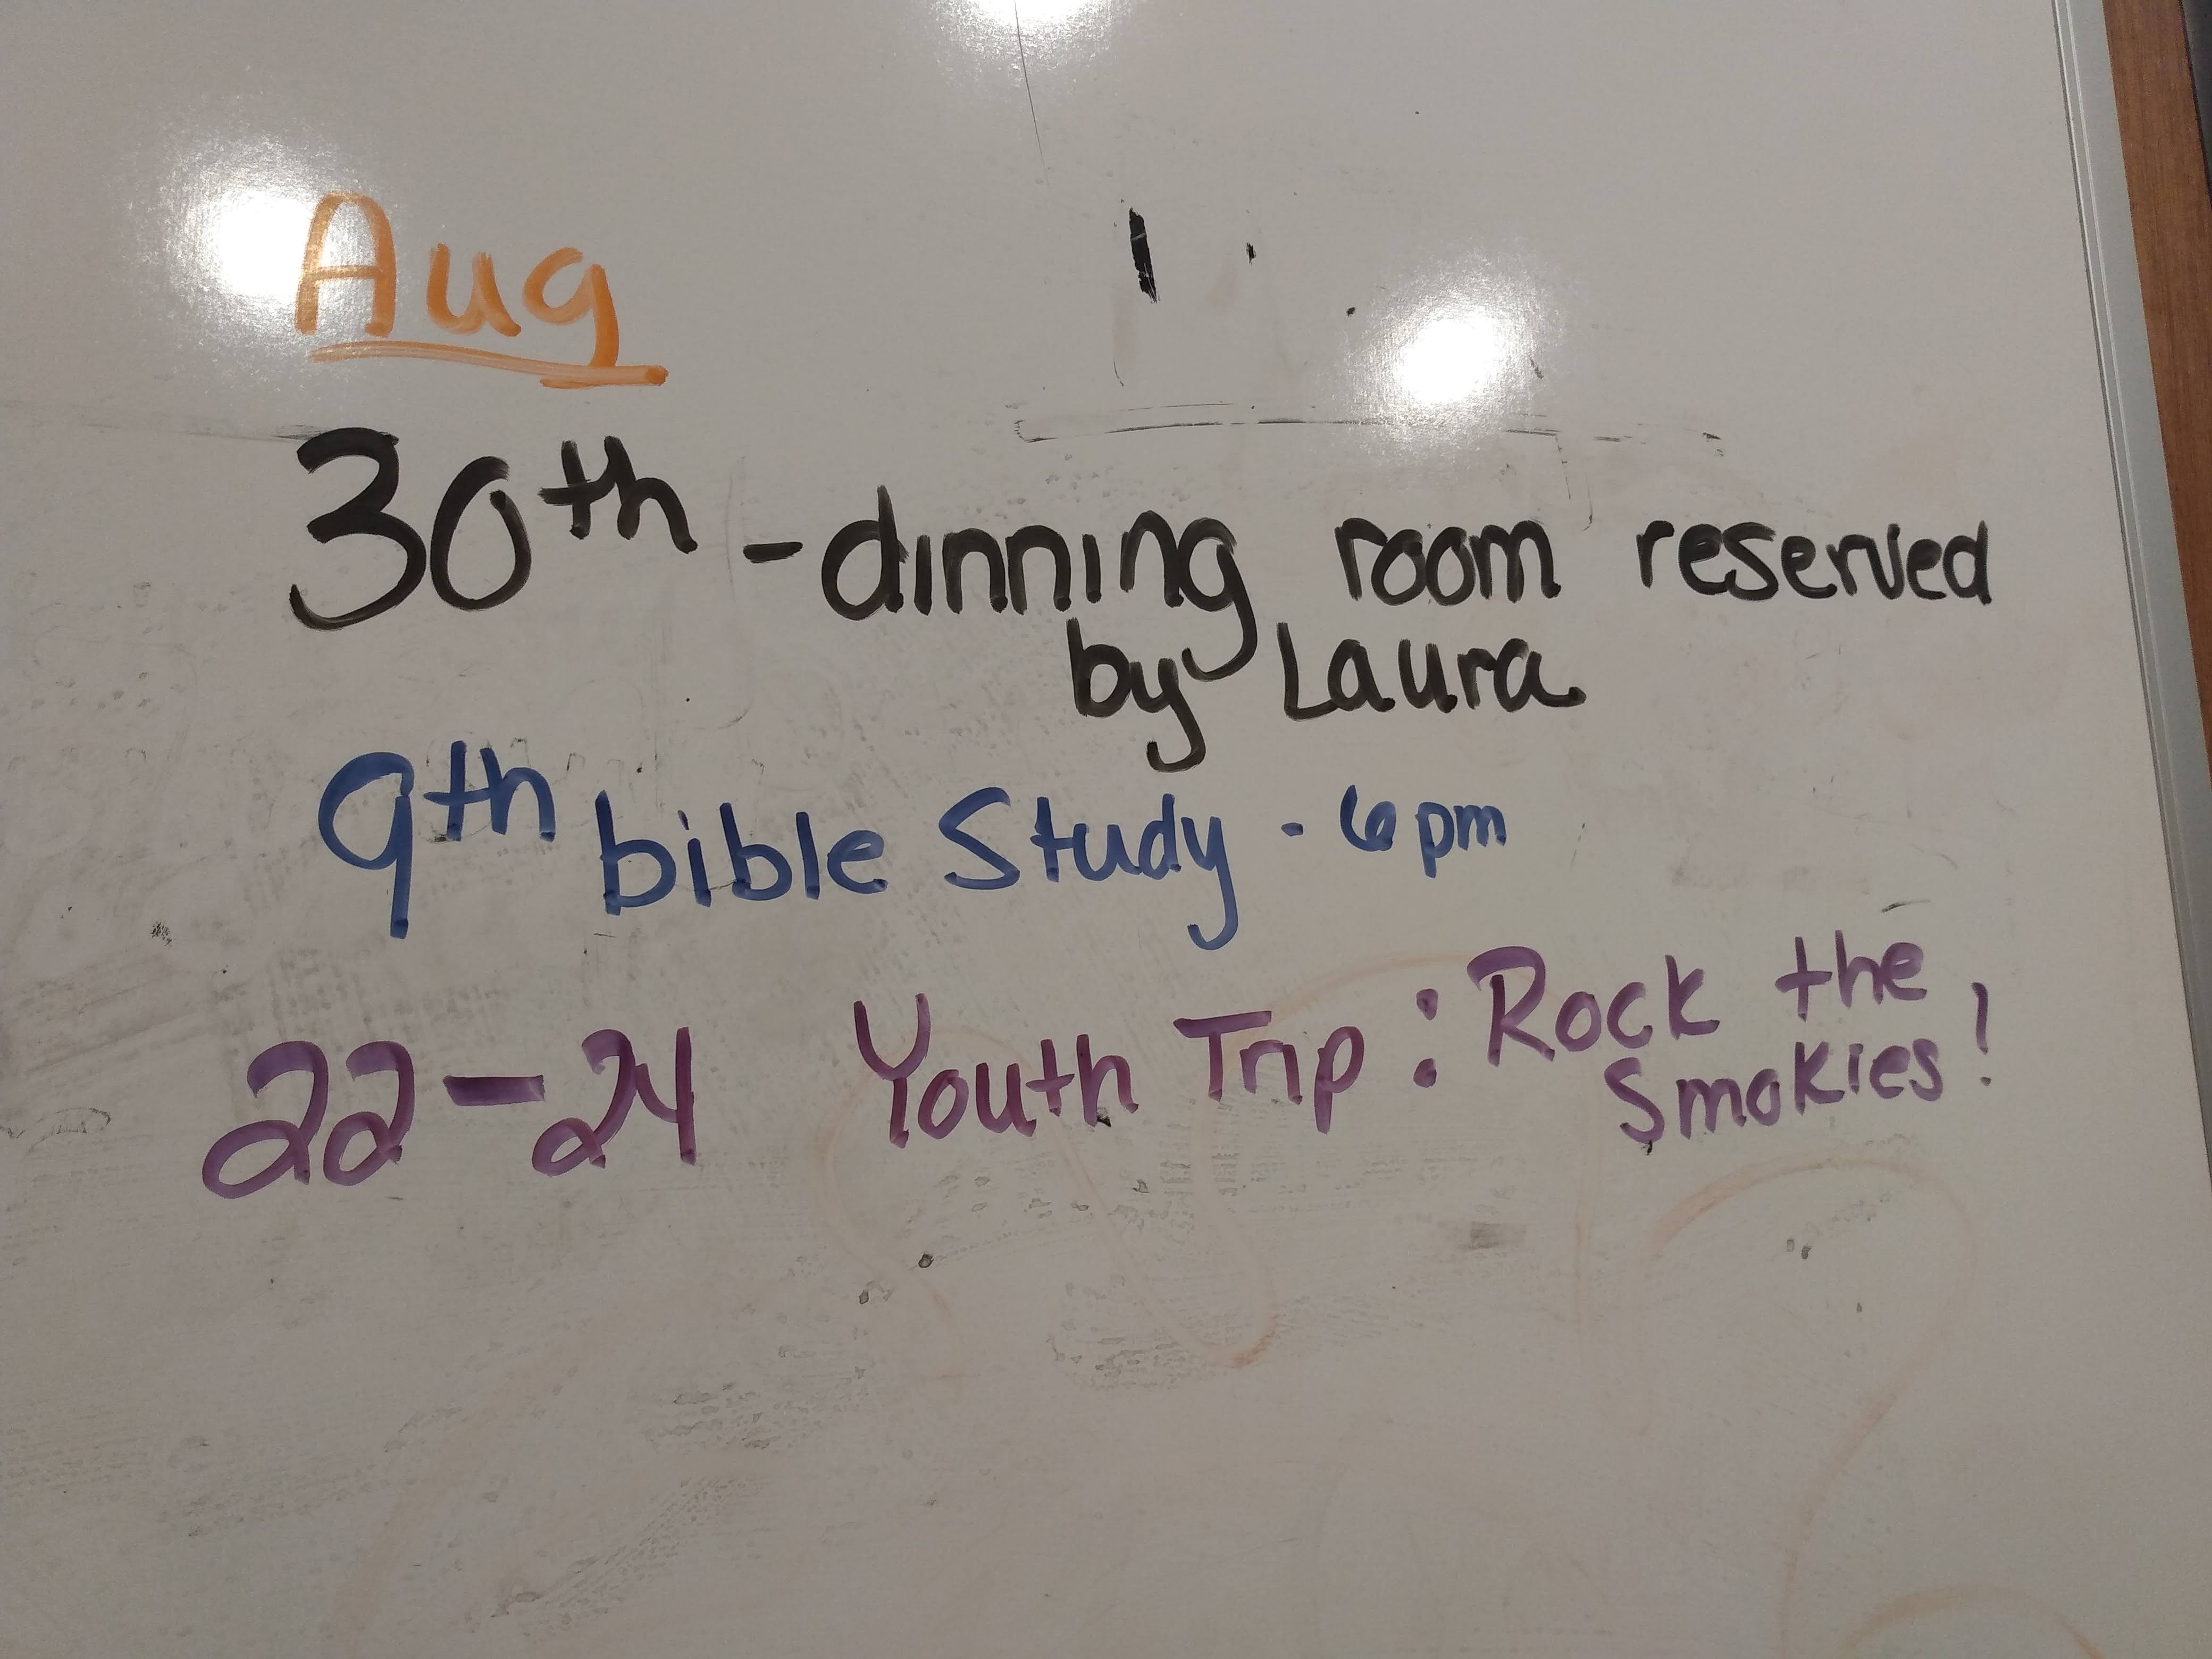 Aug
30th - dinning room reserved
by Laura
9th bible Study - 6pm
22-24 Youth Trip: Rock the
Smokies!